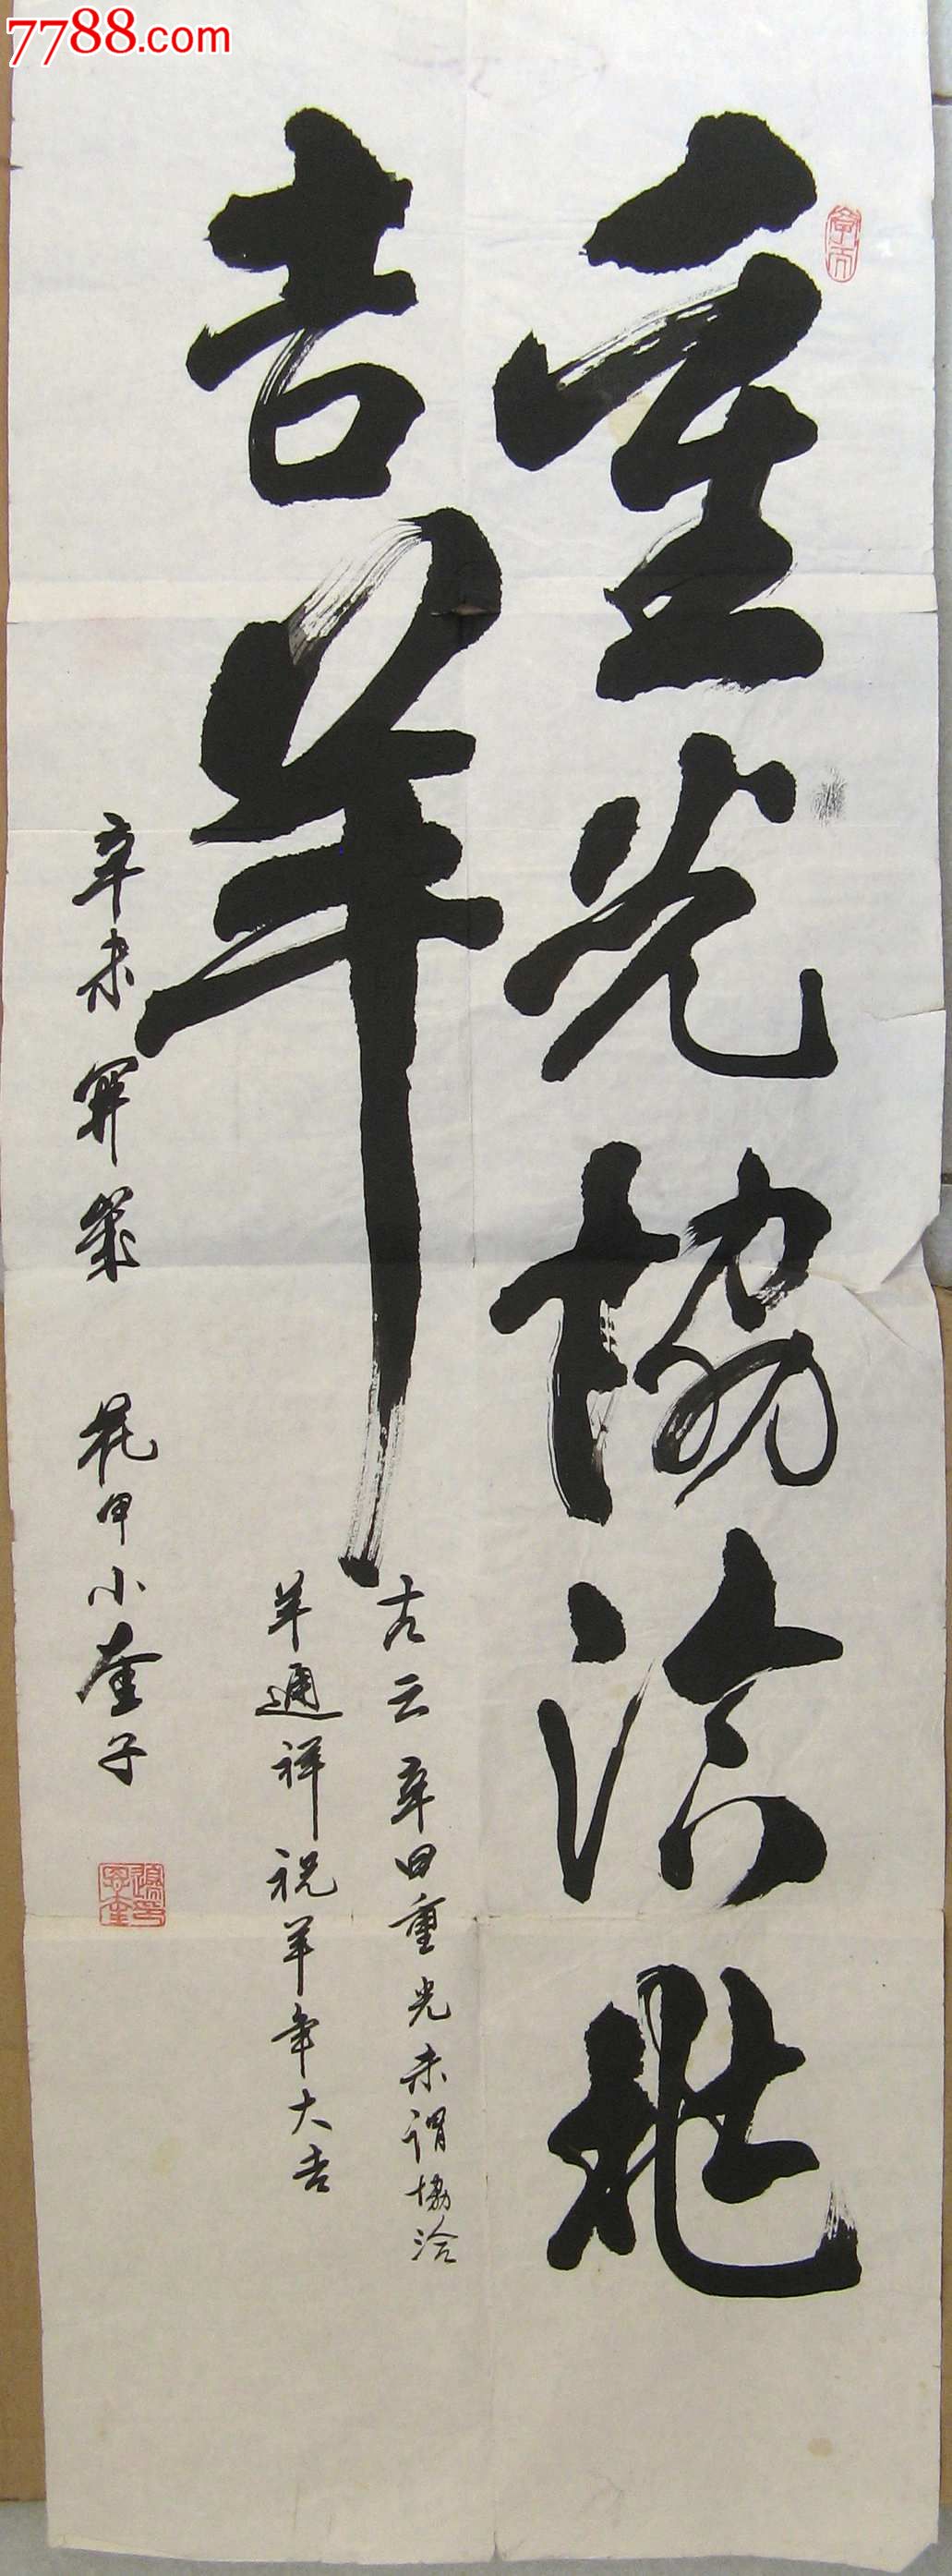 7788.com
重光協洽兆
吉羊
古云辛曰重光未謂協洽
羊通祥祝羊年大吉
辛未開歲 花甲小奎子